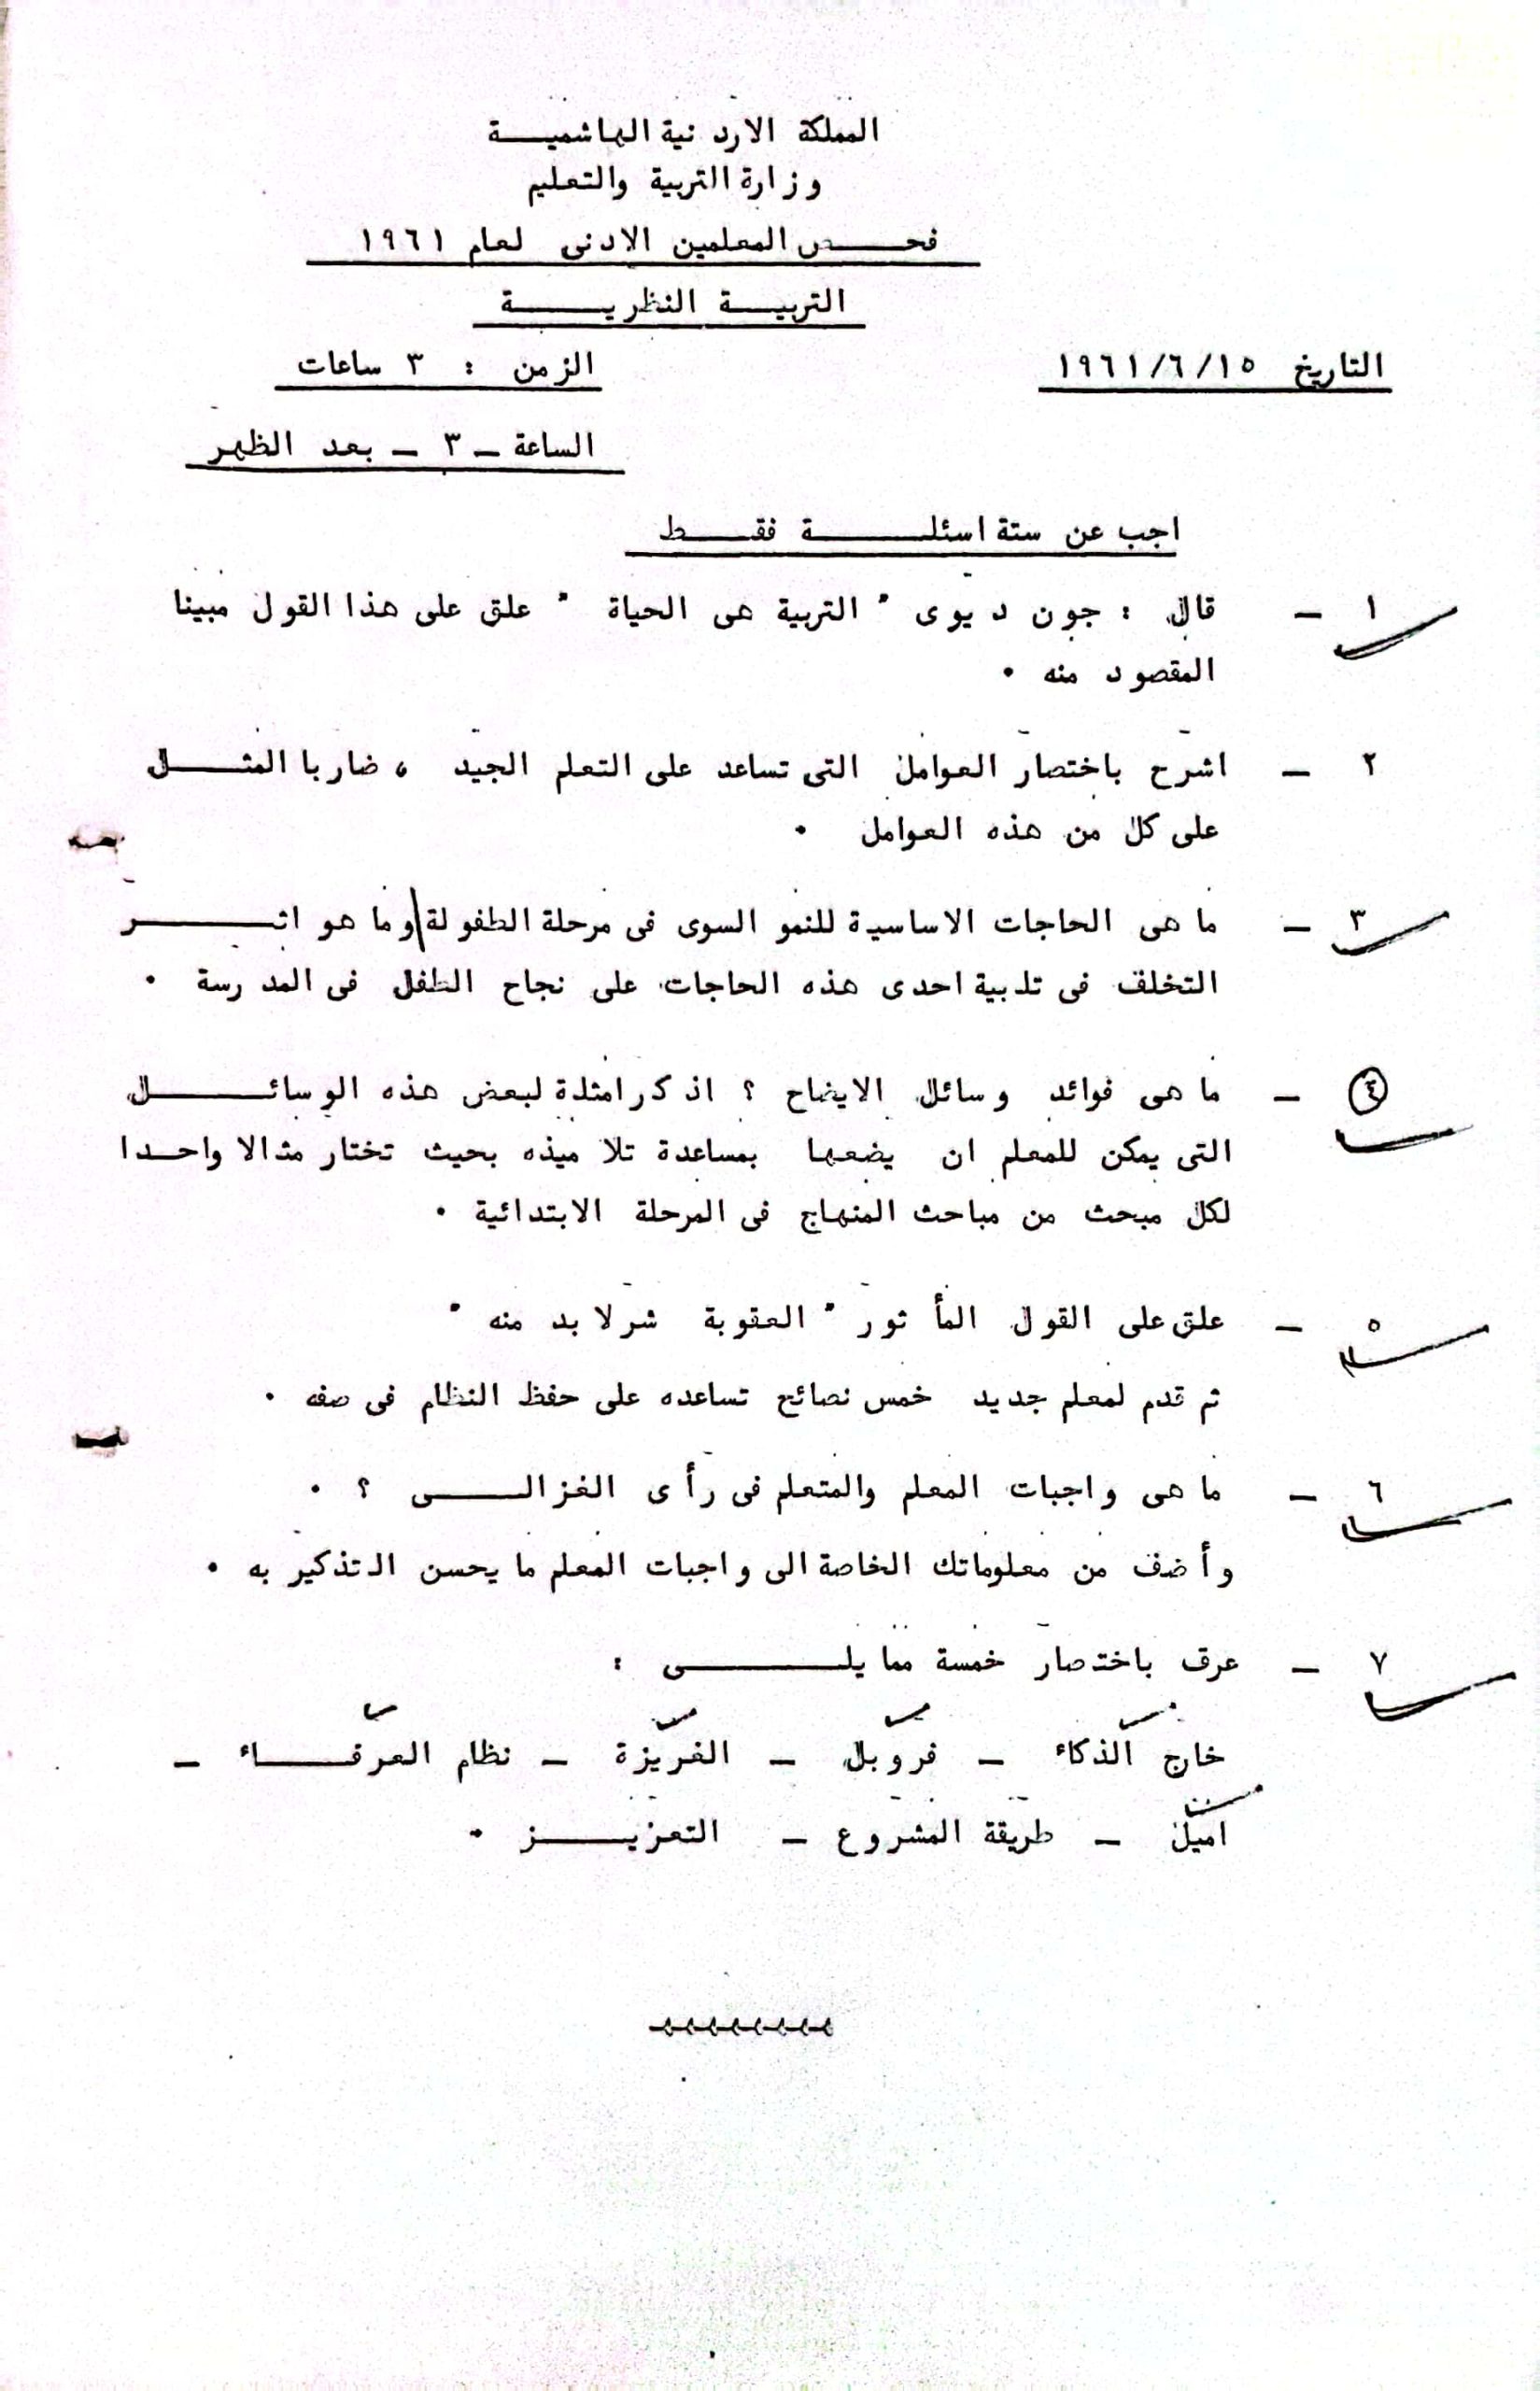 المملكة الاردنية الهاشمية
وزارة التربية والتعليم
فحص المعلمين الادنى لعام ١٩٦١
التربية النظرية
التاريخ ١٩٦١/٦/١٥ الزمن : ٣ ساعات
الساعة - ٣ - بعد الظهر
اجب عن ستة اسئلة فقط
١ - قال : جون ديوى " التربية هى الحياة " علق على هذا القول مبينا
المقصود منه .
٢ - اشرح باختصار العوامل التى تساعد على التعلم الجيد ، ضاربا المثل
على كل من هذه العوامل .
٣ - ما هى الحاجات الاساسية للنمو السوى فى مرحلة الطفولة وما هو اثر
التخلف فى تلبية احدى هذه الحاجات على نجاح الطفل فى المدرسة .
٤ - ما هى فوائد وسائل الايضاح ؟ اذكر امثلة لبعض هذه الوسائل
التى يمكن للمعلم ان يضعها بمساعدة تلاميذه بحيث تختار مثالا واحدا
لكل مبحث من مباحث المنهاج فى المرحلة الابتدائية .
٥ - علق على القول المأثور " العقوبة شر لا بد منه "
ثم قدم لمعلم جديد خمس نصائح تساعده على حفظ النظام فى صفه .
٦ - ما هى واجبات المعلم والمتعلم فى رأى الغزالى ؟ .
وأضف من معلوماتك الخاصة الى واجبات المعلم ما يحسن التذكير به .
٧ - عرف باختصار خمسة مما يلى :
خارج الذكاء - فروبل - الغريزة - نظام العرفاء -
اميل - طريقة المشروع - التعزيز .